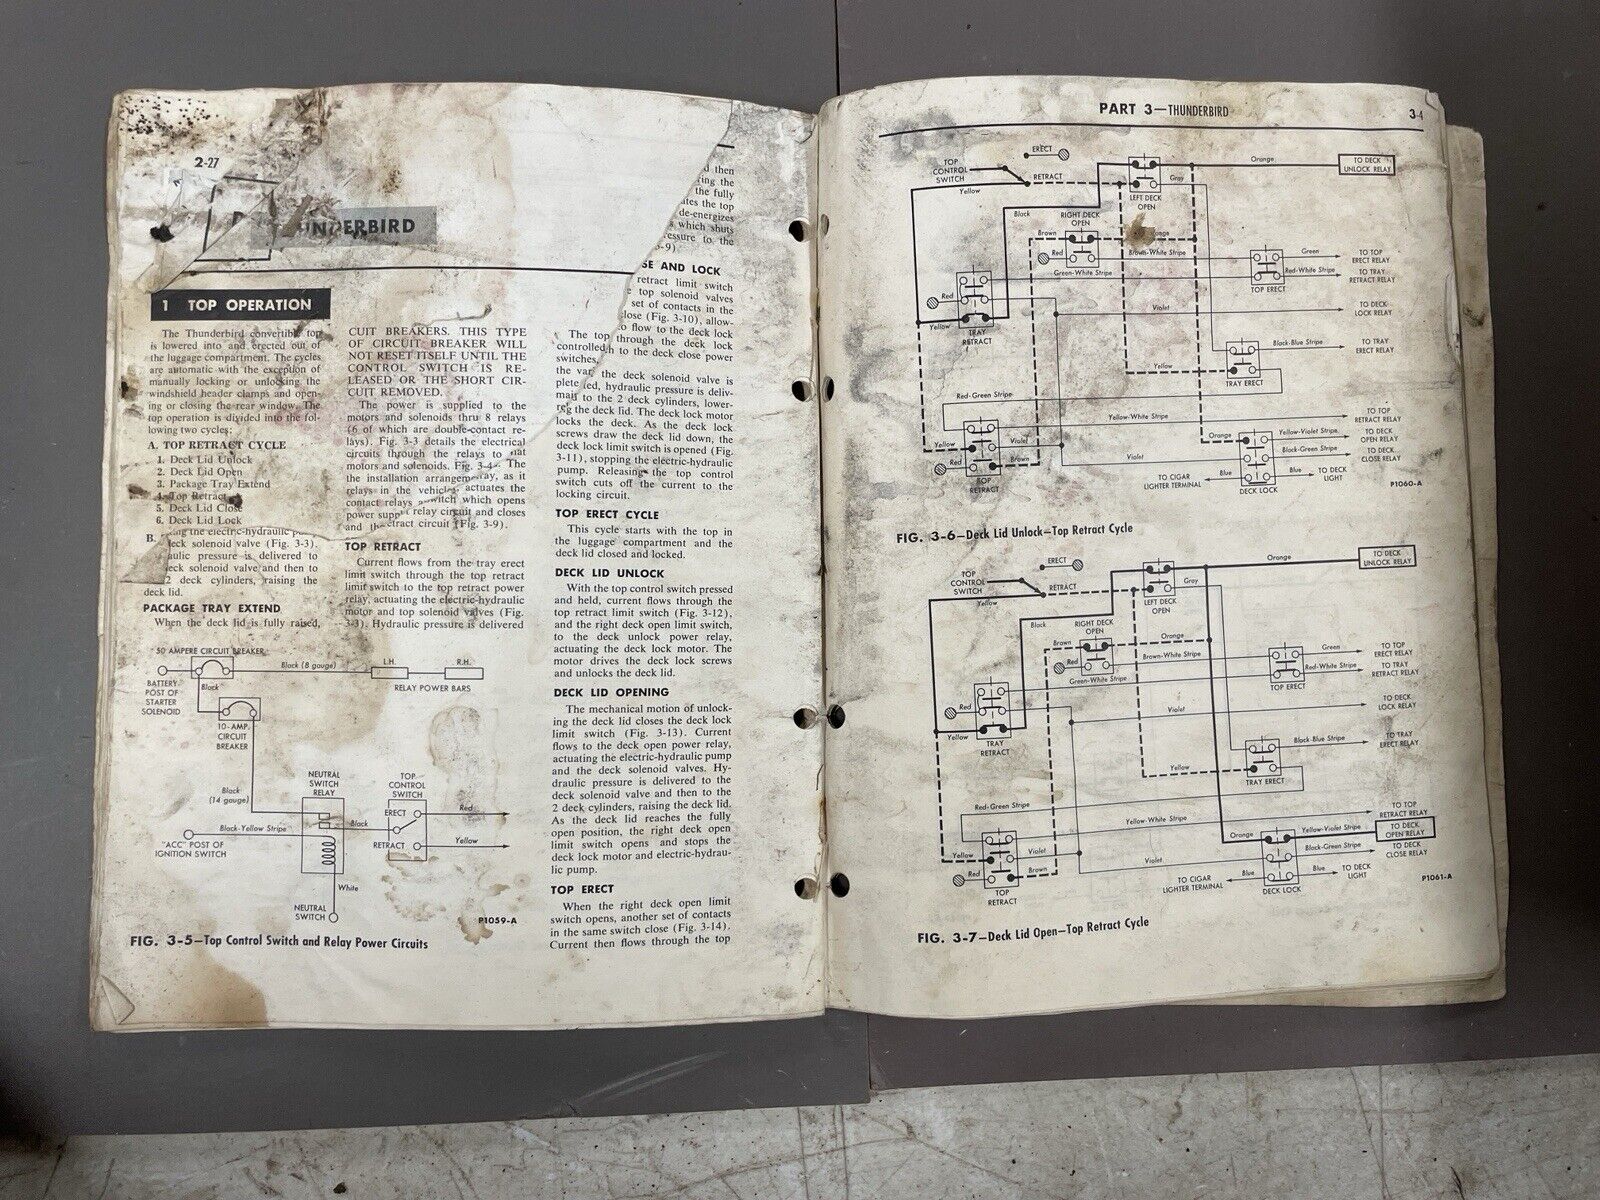 2-27
THUNDERBIRD
1 TOP OPERATION
The Thunderbird convertible top
is lowered into and erected out of
the luggage compartment. The cycles
are automatic with the exception of
manually locking or unlocking the
windshield header clamps and open-
ing or closing the rear window. The
top operation is divided into the fol-
lowing two cycles:
A. TOP RETRACT CYCLE
1. Deck Lid Unlock
2. Deck Lid Open
3. Package Tray Extend
4. Top Retract
5. Deck Lid Close
6. Deck Lid Lock
B.
ing the electric-hydraulic
deck solenoid valve (Fig. 3-3).
aulic pressure is delivered to
deck solenoid valve and then to
2 deck cylinders, raising the
deck lid.
PACKAGE TRAY EXTEND
When the deck lid is fully raised,
CUIT BREAKERS. THIS TYPE
OF CIRCUIT BREAKER WILL
NOT RESET ITSELF UNTIL THE
CONTROL SWITCH IS RE-
LEASED OR THE SHORT CIR-
CUIT REMOVED.
The power is supplied to the
motors and solenoids thru 8 relays
(6 of which are double-contact re-
lays). Fig. 3-3 details the electrical
circuits through the relays to
motors and solenoids. Fig. 3-4 The
the installation arrangem ray, as it
relays in the vehicle actuates the
contact relays switch which opens
power supp relay circuit and closes
and th etract circuit (Fig. 3-9).
TOP RETRACT
Current flows from the tray erect
limit switch through the top retract
limit switch to the top retract power
relay, actuating the electric-hydraulic
motor and top solenoid valves (Fig.
3-3). Hydraulic pressure is delivered
d then
ring the
the fully
ates the top
de-energizes
which shuts
essure to the
-9)
SE AND LOCK
retract limit switch
top solenoid valves
set of contacts in the
lose (Fig. 3-10), allow-
to flow to the deck lock
The top through the deck lock
controlled h to the deck close power
switches,
the var the deck solenoid valve is
plete ed, hydraulic pressure is deliv-
main to the 2 deck cylinders, lower-
ing the deck lid. The deck lock motor
locks the deck. As the deck lock
screws draw the deck lid down, the
deck lock limit switch is opened (Fig.
3-11), stopping the electric-hydraulic
pump. Releasing the top control
switch cuts off the current to the
locking circuit.
TOP ERECT CYCLE
This cycle starts with the top in
the luggage compartment and the
deck lid closed and locked.
DECK LID UNLOCK
With the top control switch pressed
and held, current flows through the
top retract limit switch (Fig. 3-12),
and the right deck open limit switch,
to the deck unlock power relay,
actuating the deck lock motor. The
motor drives the deck lock screws
and unlocks the deck lid.
DECK LID OPENING
The mechanical motion of unlock-
ing the deck lid closes the deck lock
limit switch (Fig. 3-13). Current
flows to the deck open power relay,
actuating the electric-hydraulic pump
and the deck solenoid valves. Hy-
draulic pressure is delivered to the
deck solenoid valve and then to the
2 deck cylinders, raising the deck lid.
As the deck lid reaches the fully
open position, the right deck open
limit switch opens and stops the
deck lock motor and electric-hydrau-
lic pump.
TOP ERECT
When the right deck open limit
switch opens, another set of contacts
in the same switch close (Fig. 3-14).
Current then flows through the top
50 AMPERE CIRCUIT BREAKER
Black (8 gauge)
L.H.
R.H.
RELAY POWER BARS
BATTERY
POST OF
STARTER
SOLENOID
Black
10-AMP.
CIRCUIT
BREAKER
NEUTRAL
SWITCH
RELAY
TOP
CONTROL
SWITCH
Black
(14 gauge)
ERECT
Red
Black-Yellow Stripe
Black
RETRACT
Yellow
"ACC" POST OF
IGNITION SWITCH
White
NEUTRAL
SWITCH
P1059-A
FIG. 3-5—Top Control Switch and Relay Power Circuits
PART 3—THUNDERBIRD
3-4
TOP
CONTROL
SWITCH
ERECT
RETRACT
Yellow
Orange
TO DECK
UNLOCK RELAY
Gray
LEFT DECK
OPEN
Black
RIGHT DECK
OPEN
Brown
Orange
Red
Brown-White Stripe
Green-White Stripe
Green
TO TOP
ERECT RELAY
Red-White Stripe
TO TRAY
RETRACT RELAY
TOP ERECT
Red
Violet
TO DECK
LOCK RELAY
Yellow
TRAY
RETRACT
Black-Blue Stripe
TO TRAY
ERECT RELAY
Yellow
TRAY ERECT
Red-Green Stripe
Yellow-White Stripe
TO TOP
RETRACT RELAY
Yellow
Violet
Orange
Yellow-Violet Stripe
TO DECK
OPEN RELAY
Black-Green Stripe
TO DECK
CLOSE RELAY
Red
Brown
Violet
TOP
RETRACT
TO CIGAR
LIGHTER TERMINAL
Blue
DECK LOCK
Blue
TO DECK
LIGHT
P1060-A
FIG. 3-6—Deck Lid Unlock—Top Retract Cycle
TOP
CONTROL
SWITCH
ERECT
RETRACT
Yellow
Orange
TO DECK
UNLOCK RELAY
Gray
LEFT DECK
OPEN
Black
RIGHT DECK
OPEN
Brown
Orange
Red
Brown-White Stripe
Green-White Stripe
Green
TO TOP
ERECT RELAY
Red-White Stripe
TO TRAY
RETRACT RELAY
TOP ERECT
Red
Violet
TO DECK
LOCK RELAY
Yellow
TRAY
RETRACT
Black-Blue Stripe
TO TRAY
ERECT RELAY
Yellow
TRAY ERECT
Red-Green Stripe
Yellow-White Stripe
TO TOP
RETRACT RELAY
Yellow
Violet
Orange
Yellow-Violet Stripe
TO DECK
OPEN RELAY
Black-Green Stripe
TO DECK
CLOSE RELAY
Red
Brown
Violet
TOP
RETRACT
TO CIGAR
LIGHTER TERMINAL
Blue
DECK LOCK
Blue
TO DECK
LIGHT
P1061-A
FIG. 3-7—Deck Lid Open—Top Retract Cycle